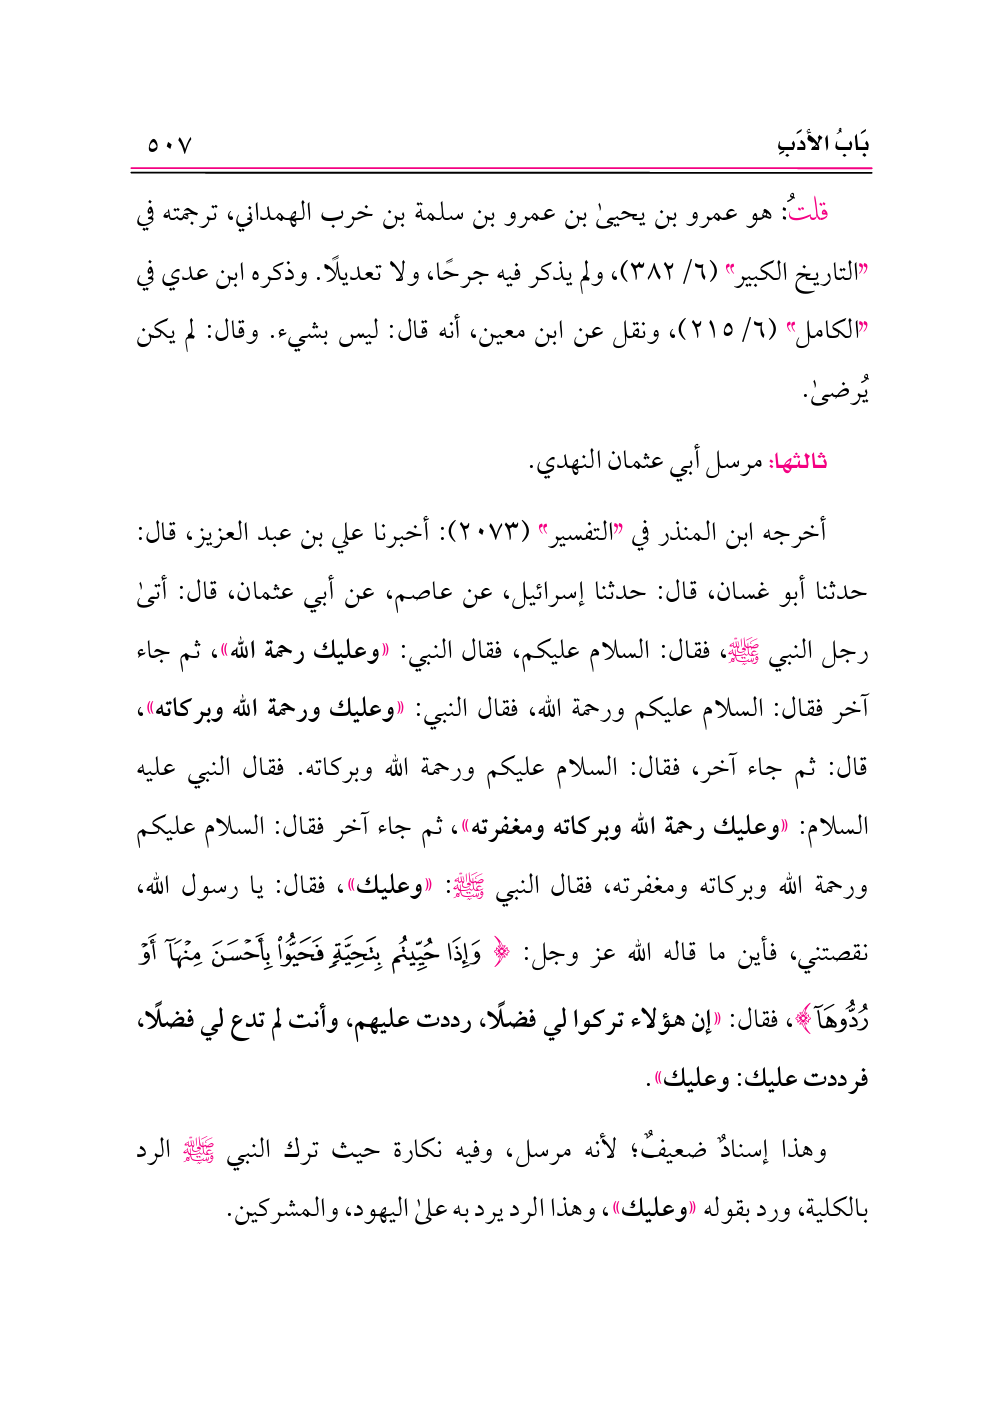 بَابُ الأدَبِ ٥٠٧
قلتُ: هو عمرو بن يحيىٰ بن عمرو بن سلمة بن خرب الهمداني، ترجمته في
"التاريخ الكبير" (٦/ ٣٨٢)، ولم يذكر فيه جرحًا، ولا تعديلًا. وذكره ابن عدي في
"الكامل" (٦/ ٢١٥)، ونقل عن ابن معين، أنه قال: ليس بشيء. وقال: لم يكن
يُرضىٰ.
ثالثها: مرسل أبي عثمان النهدي.
أخرجه ابن المنذر في "التفسير" (٢٠٧٣): أخبرنا علي بن عبد العزيز، قال:
حدثنا أبو غسان، قال: حدثنا إسرائيل، عن عاصم، عن أبي عثمان، قال: أتىٰ
رجل النبي ﷺ، فقال: السلام عليكم، فقال النبي: «وعليك رحمة الله»، ثم جاء
آخر فقال: السلام عليكم ورحمة الله، فقال النبي: «وعليك ورحمة الله وبركاته»،
قال: ثم جاء آخر، فقال: السلام عليكم ورحمة الله وبركاته. فقال النبي عليه
السلام: «وعليك رحمة الله وبركاته ومغفرته»، ثم جاء آخر فقال: السلام عليكم
ورحمة الله وبركاته ومغفرته، فقال النبي ﷺ: «وعليك»، فقال: يا رسول الله،
نقصتني، فأين ما قاله الله عز وجل: ﴿ وَإِذَا حُيِّيتُم بِتَحِيَّةٍ فَحَيُّوا۟ بِأَحْسَنَ مِنْهَآ أَوْ
رُدُّوهَآ﴾، فقال: «إن هؤلاء تركوا لي فضلًا، رددت عليهم، وأنت لم تدع لي فضلًا،
فرددت عليك: وعليك».
وهذا إسنادٌ ضعيفٌ؛ لأنه مرسل، وفيه نكارة حيث ترك النبي ﷺ الرد
بالكلية، ورد بقوله «وعليك»، وهذا الرد يرد به علىٰ اليهود، والمشركين.